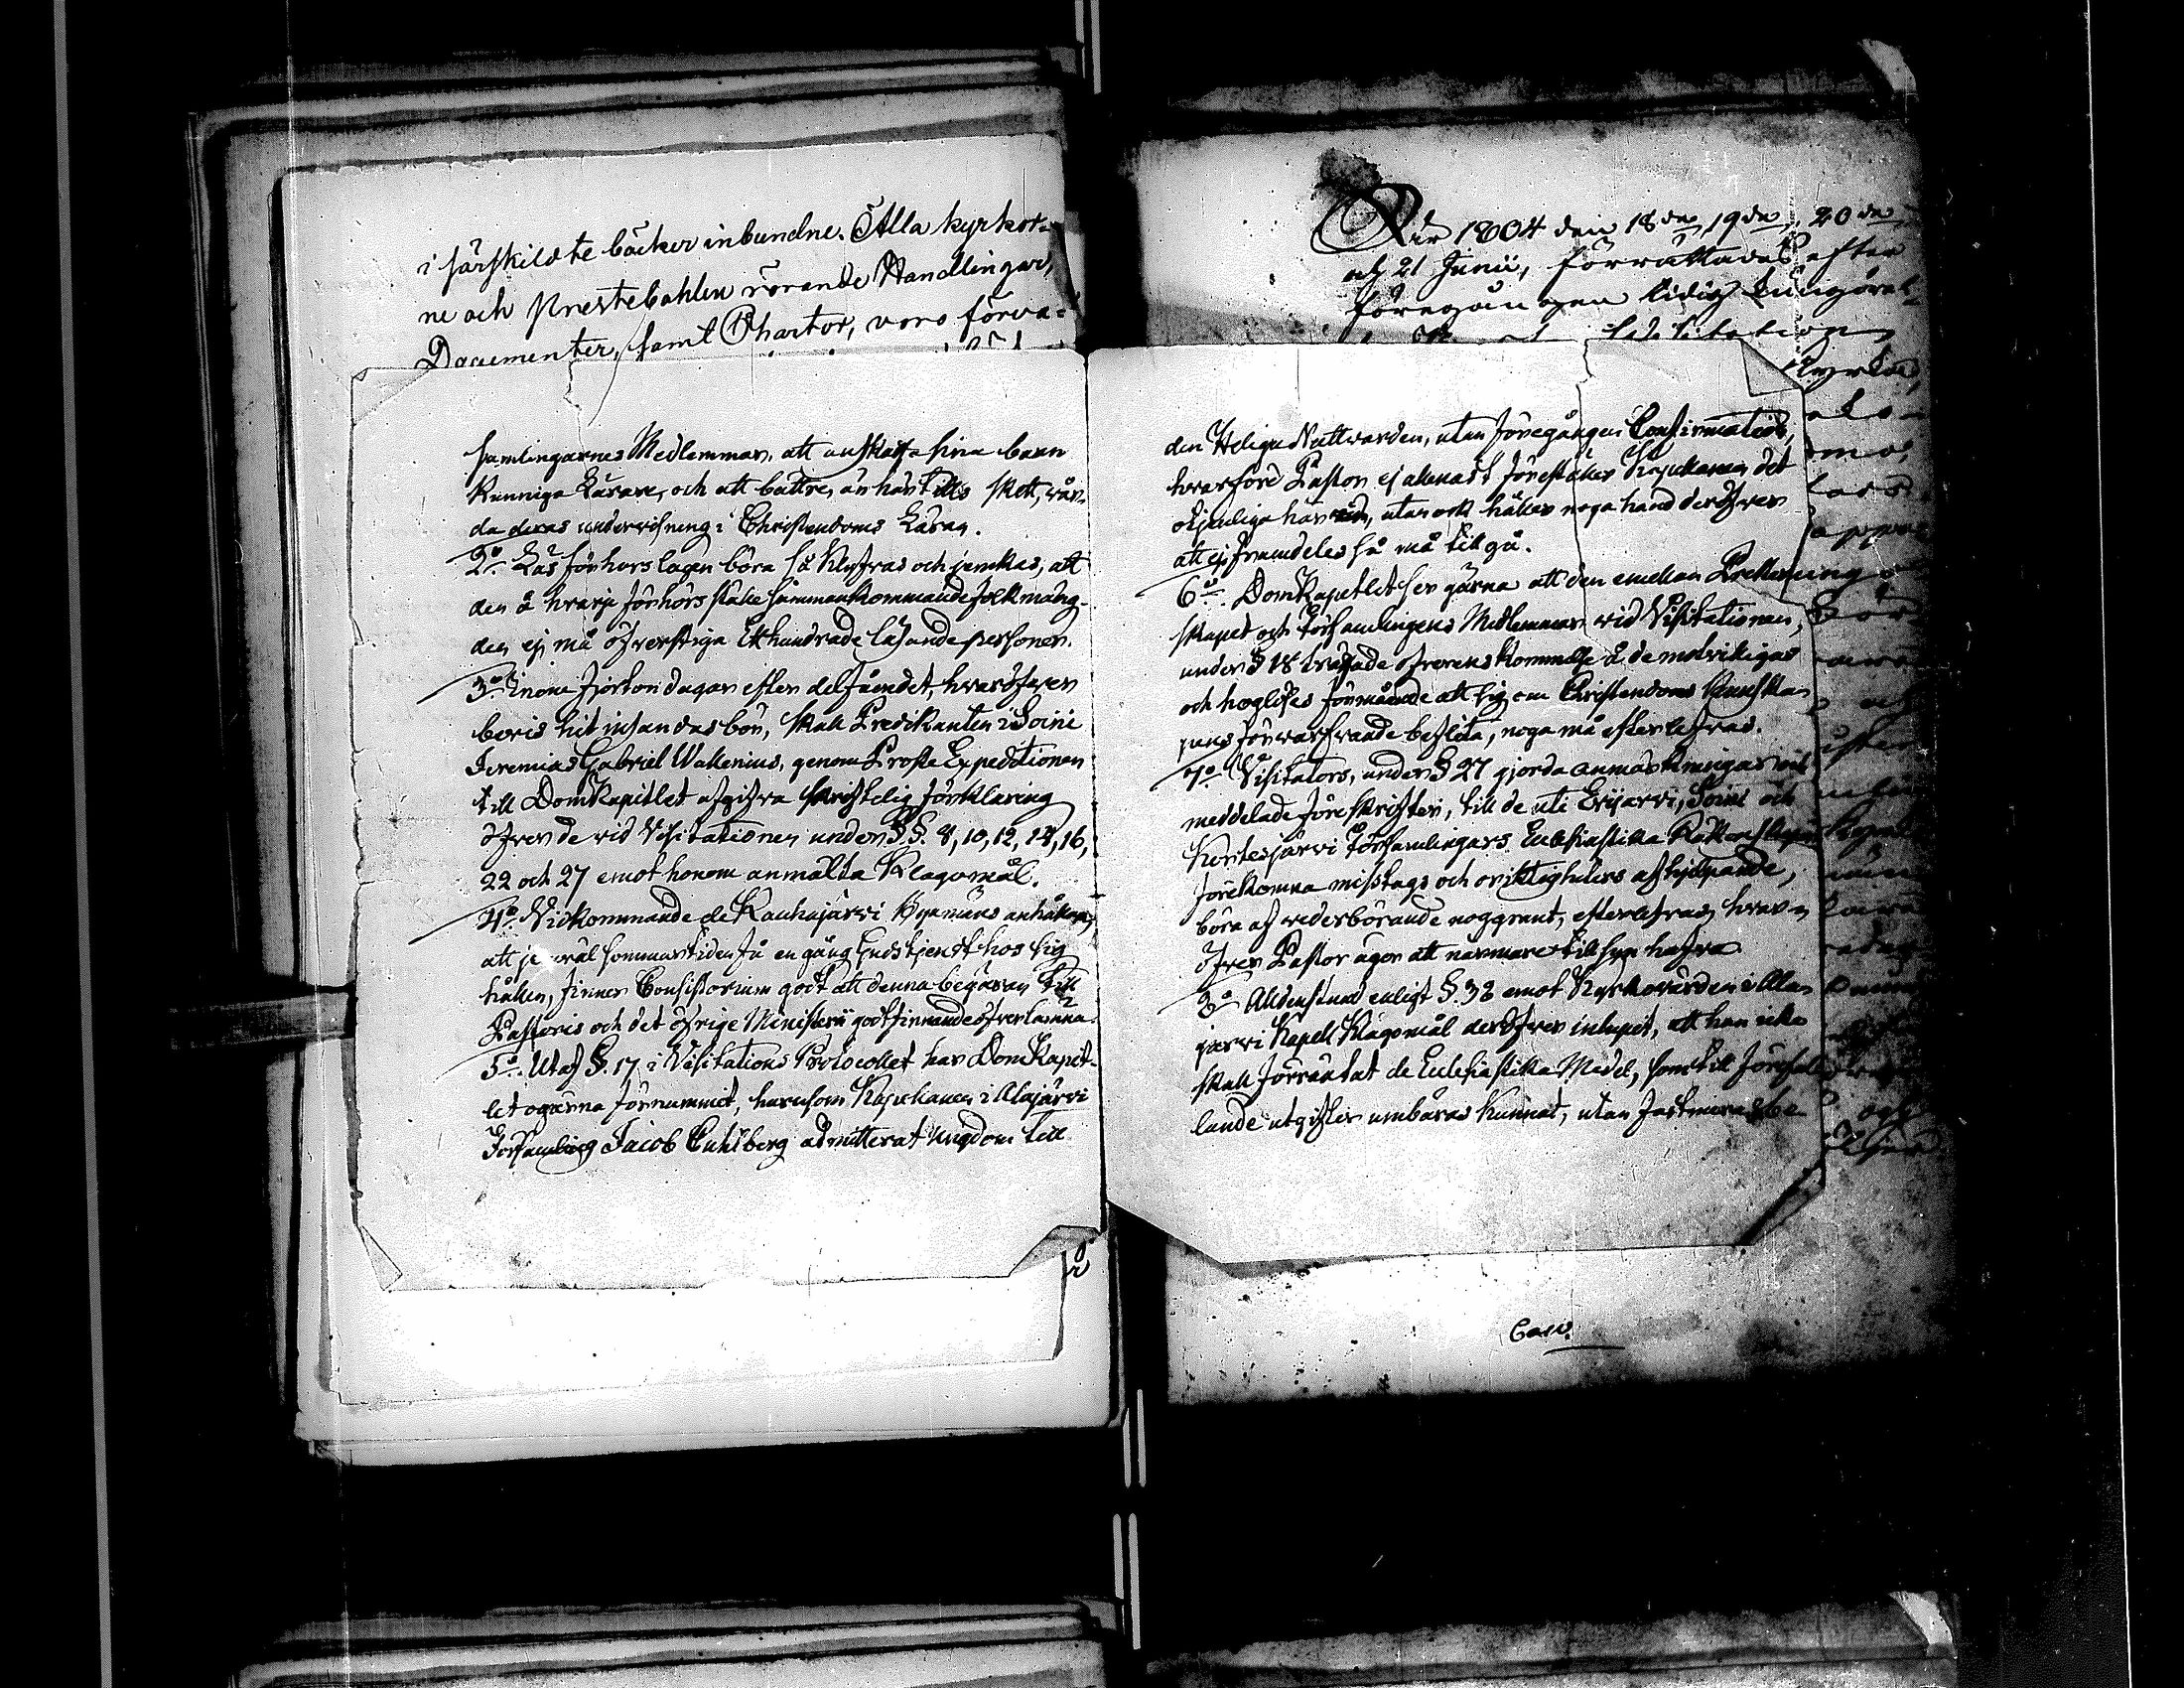 i särskildte böcker inbundne. Alla kyrkor-
ne och Prestebohlen rörande Handlingar,
Documenter, samt Chartor, voro förva-
samlingarnes Medlemmar, att anskaffa sina barn
kunniga Lärare, och att bättre, än här tills skett, vår-
da deras undervisning i Christendoms Läran.
2:o Läs förhörs lagen böra så klyfvas och jemkas, att
den å hvarje förhörs ställe sammankommande folkmäng-
den ej må öfverstiga Etthundrade läsande personer.
3:o Inom fjorton dagar efter delfåendet, hvaröfver
bevis hit insändas bör, skall Predikanten i Soini
Jeremias Gabriel Wallenius, genom Proste Expeditionen
till DomKapitlet afgifva skriftelig förklaring
öfver de vid Visitationen under §§. 8, 10, 12, 14, 16,
22 och 27 emot honom anmälta Klagomål.
4:o Vidkommande de Kauhajärvi Byamäns anhållan,
att je väl sommartiden få en gång Gudstjenst hos sig
hållen, finner Consistorium godt att denna begäran till
Pastoris och det öfrige Ministerii godtfinnande öfverlämna.
5:o Utaf §. 17 i Visitations Protocollet har DomKapit-
let ogärna förnummit, hurusom Kapellanen i Alajärvi
Församling Jacob Cuhlberg admitterat Ungdom till
den Heliga Nattvarden, utan föregången Confirmation,
hvarföre Pastor ej allenast föreställer Kapellanen det
oljenliga härvid, utan ock håller noga hand deröfver
att ej framdeles så må tillgå.
6:o DomKapitlet ser gärna att den emellan Presterskapet
skapet och Församlingens Medlemmar vid Visitationen,
under § 18 träffade öfverenskommelse å de motvilligas
och högligas förmående att sig om Christendoms Kunska-
pens förvärfvande beflita, noga må efterlefvas.
7:o Visitators, under § 27 gjorda anmärkningar och
meddelade föreskrifter, till de uti Evijärvi, Soini och
Kortesjärvi Församlingars Ecclesiastika
förekomna misstags och oriktigheters afhjelpande,
böra af vederbörande noggrant, efterlefvas, hvar-
öfver Pastor äger att närmare tillsyn hafva.
8:o Aldenstund enligt §. 38 emot Kyrkovärden i Ala-
järvi Kapell Klagomål deröfver inlupit, att han icke
skall förräntat de Ecclesiastika Medel, som till förefal-
lande utgifter umbäras kunnat, utan fastmera
År 1804 den 18de, 19de, 20de,
och 21 Junii, förrättades efter
föregången lidig kungörel-
Visitation
Kyrkan,